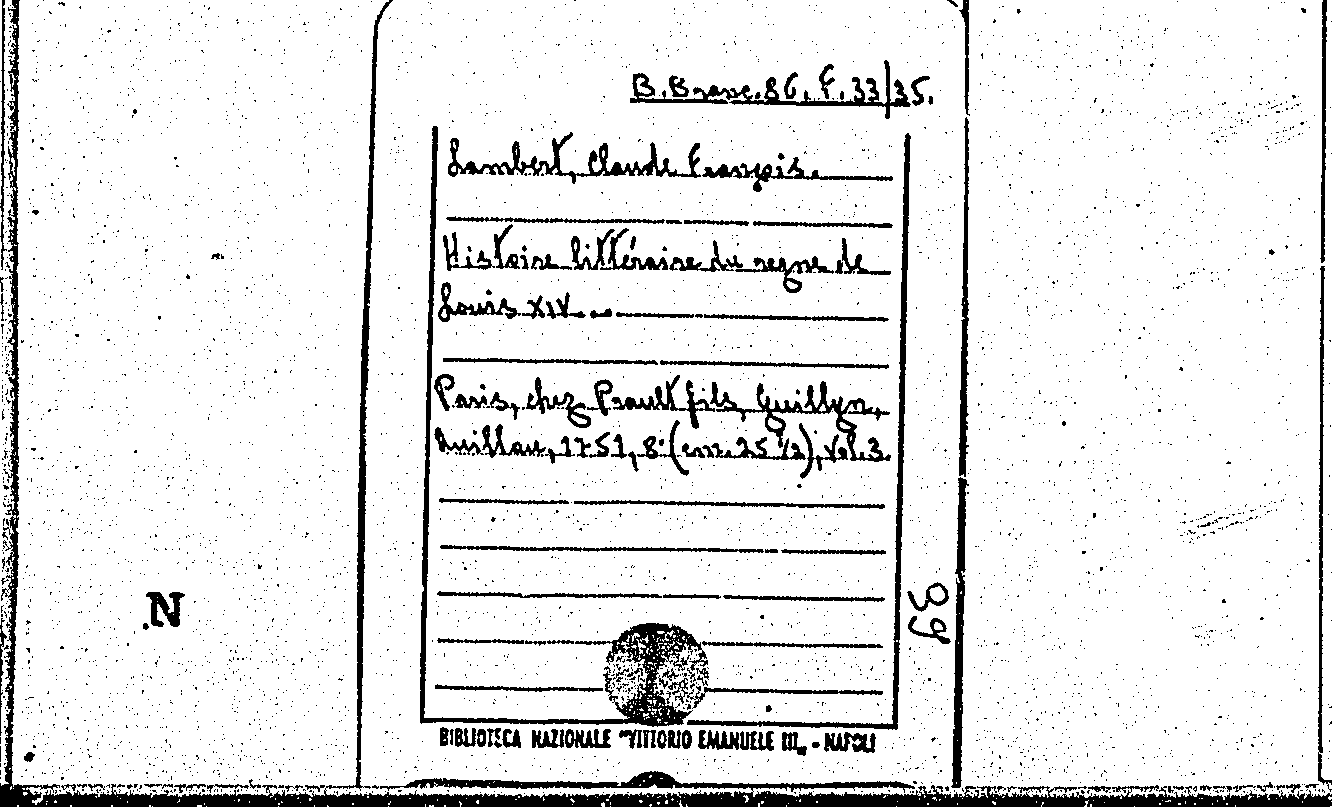 B.Branc.86. F. 33/35.
Lambert, Claude François.
Histoire littéraire du regne de
Louis XIV...
Paris, chez Prault fils, Guillyn,
Quillau, 1751, 8° (cm. 25 1/2), Vol. 3.
39
N
BIBLIOTECA NAZIONALE "VITTORIO EMANUELE III„ - NAPOLI